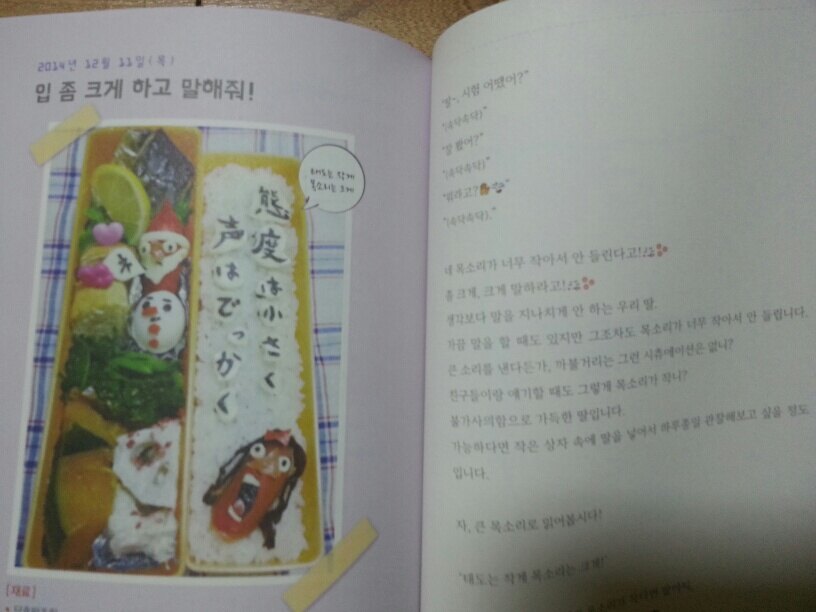 2014년 12월 11일(목)
입 좀 크게 하고 말해줘!
태도는 작게
목소리는 크게
態度は小さく
声はでっかく
[재료]
시험 어땠어?"
"(속닥속닥)"
"잘 봤어?"
"(속닥속닥)"
"뭐라고?
"(속닥속닥)."
네 목소리가 너무 작아서 안 들린다고!
좀 크게, 크게 말하라고!
생각보다 말을 지나치게 안 하는 우리 딸.
가끔 말을 할 때도 있지만 그조차도 목소리가 너무 작아서 안 들립니다.
큰 소리를 낸다든가, 까불거리는 그런 시츄에이션은 없니?
친구들이랑 얘기할 때도 그렇게 목소리가 작니?
불가사의함으로 가득한 딸입니다.
가능하다면 작은 상자 속에 딸을 넣어서 하루종일 관찰해보고 싶을 정도
입니다.
자, 큰 목소리로 읽어봅시다!
"태도는 작게 목소리는 크게!"